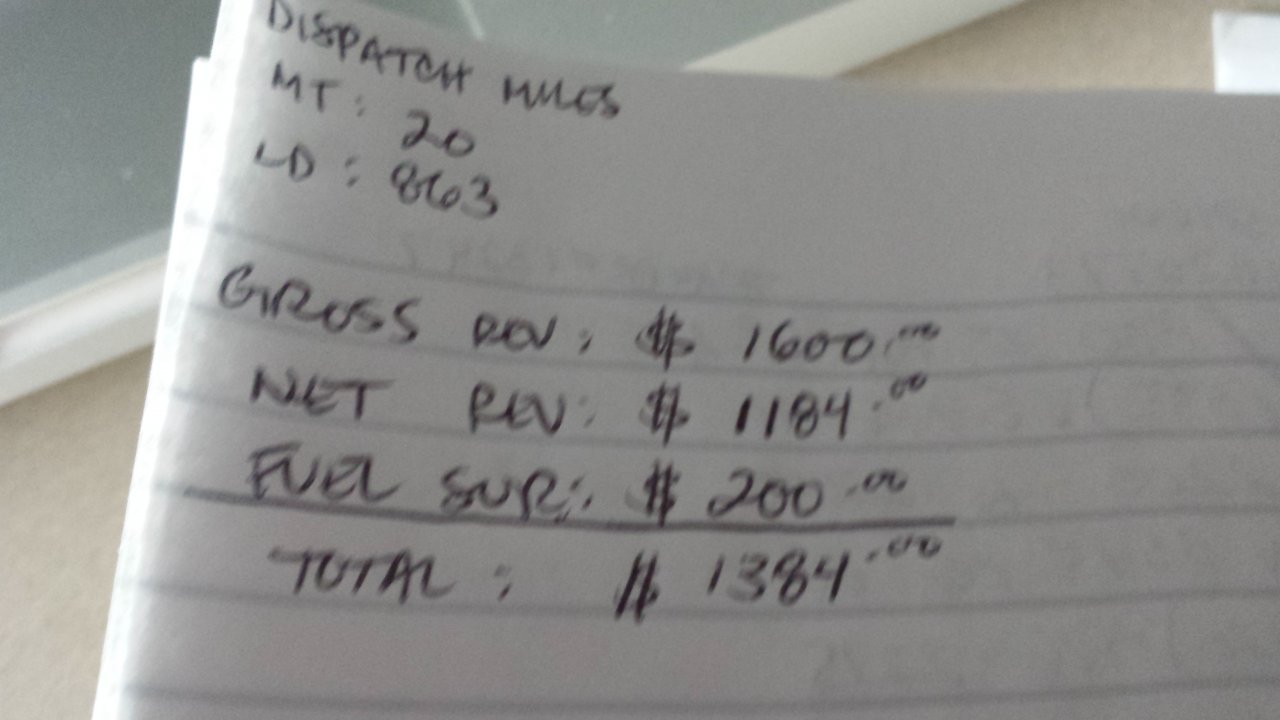 DISPATCH MILES
MT: 20
LD: 863
GROSS REV: $ 1600.00
NET REV: $ 1184.00
FUEL SUR: $ 200.00
TOTAL: $ 1384.00